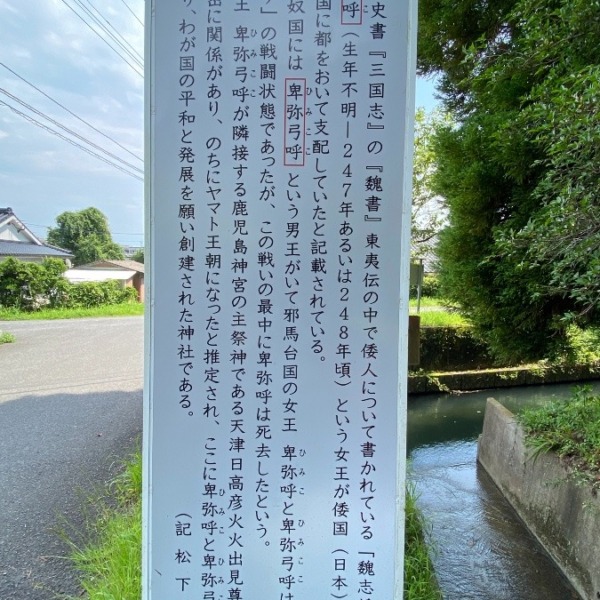 史書『三国志』の『魏書』東夷伝の中で倭人について書かれている「魏志
呼（生年不明―247年あるいは248年頃）という女王が倭国（日本）
国に都をおいて支配していたと記載されている。
奴国には卑弥弓呼という男王がいて邪馬台国の女王 卑弥呼と卑弥弓呼は
」の戦闘状態であったが、この戦いの最中に卑弥呼は死去したという。
王 卑弥弓呼が隣接する鹿児島神宮の主祭神である天津日高彦火火出見尊
に関係があり、のちにヤマト王朝になったと推定され、ここに卑弥呼と卑弥弓
、わが国の平和と発展を願い創建された神社である。
（記 松下